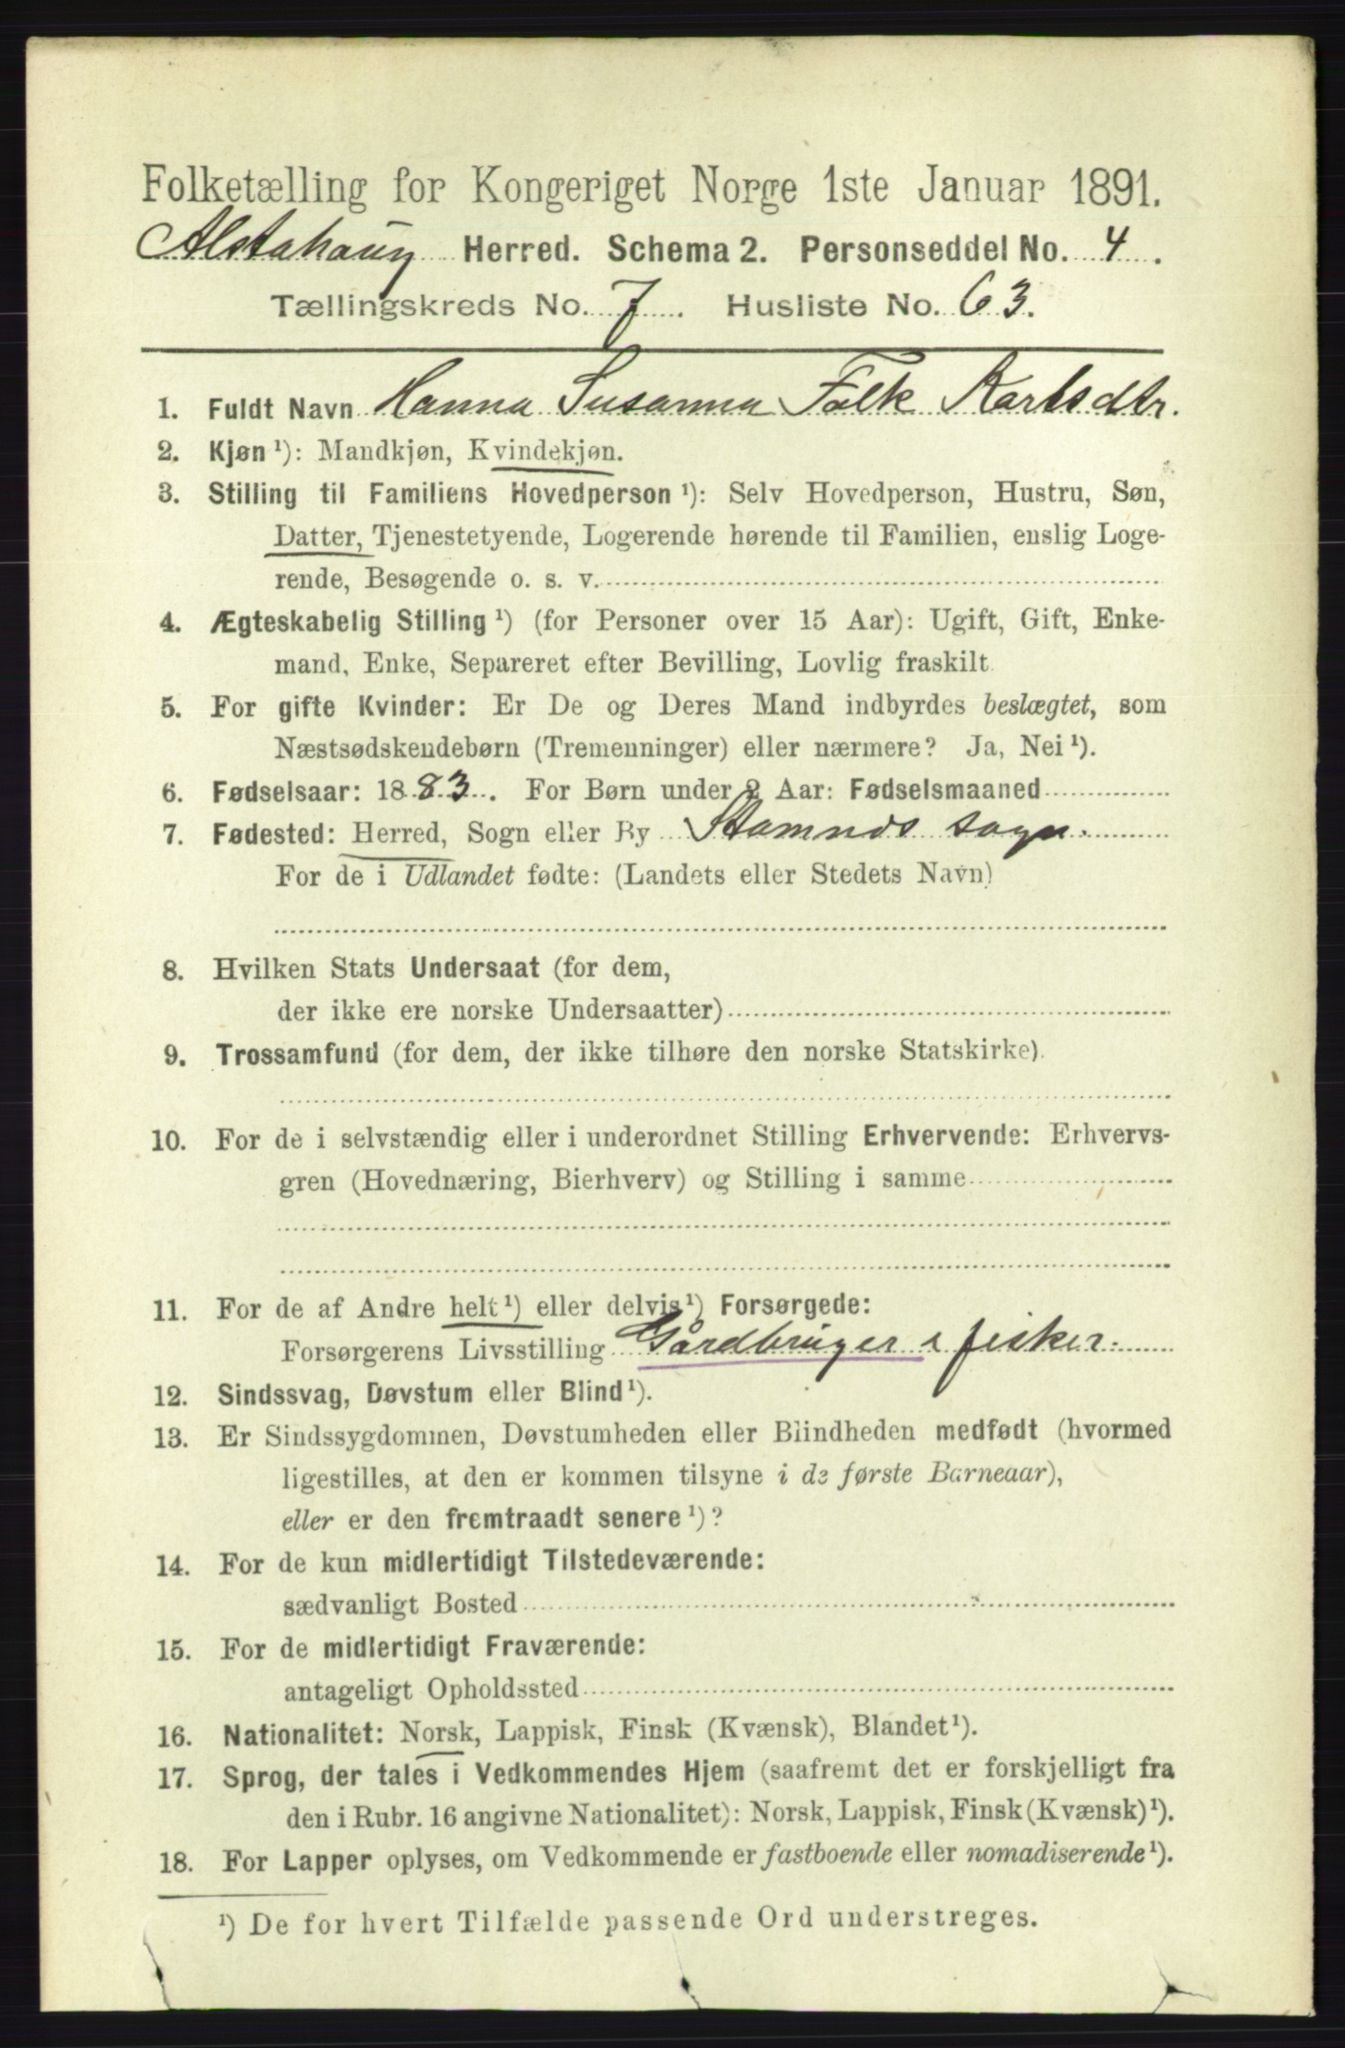 Folketælling for Kongeriget Norge 1ste Januar 1891.
Alstahaug Herred. Schema 2. Personseddel No. 4.
Tællingskreds No. 7. Husliste No. 63.
1. Fuldt Navn Hanna Susanna Falk Karlsdtr.
2. Kjøn ¹): Mandkjøn, Kvindekjøn.
3. Stilling til Familiens Hovedperson ¹): Selv Hovedperson, Hustru, Søn,
Datter, Tjenestetyende, Logerende hørende til Familien, enslig Loge-
rende, Besøgende o. s. v.
4. Ægteskabelig Stilling ¹) (for Personer over 15 Aar): Ugift, Gift, Enke-
mand, Enke, Separeret efter Bevilling, Lovlig fraskilt
5. For gifte Kvinder: Er De og Deres Mand indbyrdes beslægtet, som
Næstsødskendebørn (Tremenninger) eller nærmere? Ja, Nei ¹).
6. Fødselsaar: 1883. For Børn under 2 Aar: Fødselsmaaned
7. Fødested: Herred, Sogn eller By Stamnæs sogn.
For de i Udlandet fødte: (Landets eller Stedets Navn)
8. Hvilken Stats Undersaat (for dem,
der ikke ere norske Undersaatter)
9. Trossamfund (for dem, der ikke tilhøre den norske Statskirke).
10. For de i selvstændig eller i underordnet Stilling Erhvervende: Erhvervs-
gren (Hovednæring, Bierhverv) og Stilling i samme
11. For de af Andre helt ¹) eller delvis ¹) Forsørgede:
Forsørgerens Livsstilling Gårdbruger & fisker.
12. Sindssvag, Døvstum eller Blind ¹).
13. Er Sindssygdommen, Døvstumheden eller Blindheden medfødt (hvormed
ligestilles, at den er kommen tilsyne i de første Barneaar),
eller er den fremtraadt senere ¹)?
14. For de kun midlertidigt Tilstedeværende:
sædvanligt Bosted
15. For de midlertidigt Fraværende:
antageligt Opholdssted
16. Nationalitet: Norsk, Lappisk, Finsk (Kvænsk), Blandet ¹).
17. Sprog, der tales i Vedkommendes Hjem (saafremt det er forskjelligt fra
den i Rubr. 16 angivne Nationalitet): Norsk, Lappisk, Finsk (Kvænsk) ¹).
18. For Lapper oplyses, om Vedkommende er fastboende eller nomadiserende ¹).
¹) De for hvert Tilfælde passende Ord understreges.